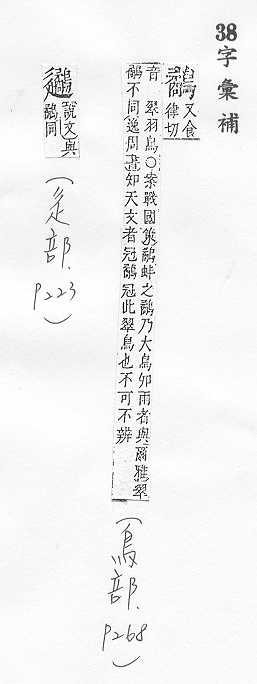 38字彙補
又食
律切
音 翠羽鳥〇案戰國策鷸蚌之鷸乃大鳥知雨者與爾雅翠
鷸不同逸周書知天文者冠鷸冠此翠鳥也不可不辨
(鳥部. P268)
說文與
鷸同
(辵部. P223)